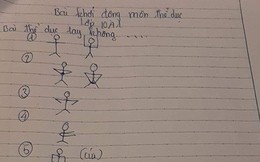 Bài khởi động môn thể dục
lớp 10A1
Bài thể dục tay không ....
①
②
③
④
⑤ (cúi)